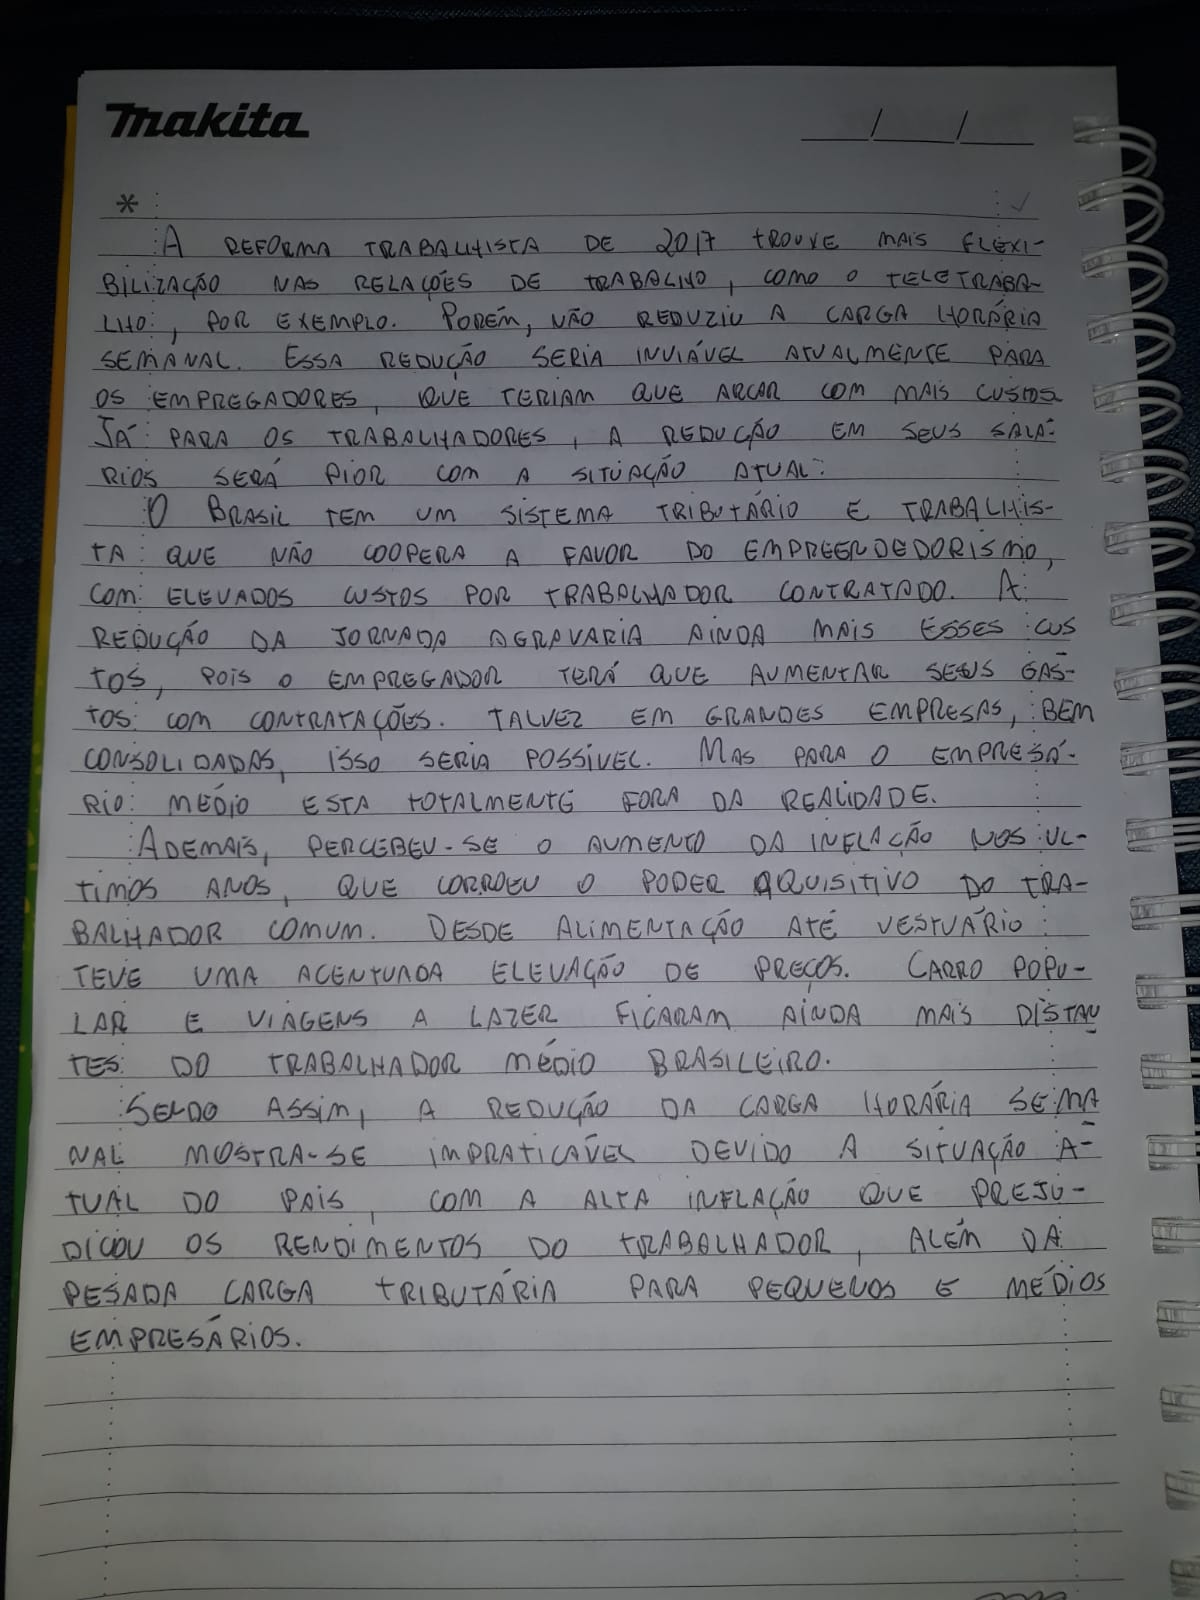 makita
A REFORMA TRABALHISTA DE 2017 TROUXE MAIS FLEXI-
BILIZAÇÃO NAS RELAÇÕES DE TRABALHO, COMO O TELETRABA-
LHO, POR EXEMPLO. PORÉM, NÃO REDUZIU A CARGA HORÁRIA
SEMANAL. ESSA REDUÇÃO SERIA INVIÁVEL ATUALMENTE PARA
OS EMPREGADORES, QUE TERIAM QUE ARCAR COM MAIS CUSTOS
JÁ PARA OS TRABALHADORES, A REDUÇÃO EM SEUS SALÁ-
RIOS SERÁ PIOR COM A SITUAÇÃO ATUAL.
O BRASIL TEM UM SISTEMA TRIBUTÁRIO E TRABALHIS-
TA QUE NÃO COOPERA A FAVOR DO EMPREENDEDORISMO,
COM ELEVADOS CUSTOS POR TRABALHADOR CONTRATADO. A
REDUÇÃO DA JORNADA AGRAVARIA AINDA MAIS ESSES CUS
TOS, POIS O EMPREGADOR TERÁ QUE AUMENTAR SEUS GAS-
TOS COM CONTRATAÇÕES. TALVEZ EM GRANDES EMPRESAS, BEM
CONSOLIDADAS, ISSO SERIA POSSÍVEL. MAS PARA O EMPRESÁ-
RIO MÉDIO ESTA TOTALMENTE FORA DA REALIDADE.
ADEMAIS, PERCEBEU-SE O AUMENTO DA INFLAÇÃO NOS ÚL-
TIMOS ANOS, QUE CORROEU O PODER AQUISITIVO DO TRA-
BALHADOR COMUM. DESDE ALIMENTAÇÃO ATÉ VESTUÁRIO
TEVE UMA ACENTUADA ELEVAÇÃO DE PREÇOS. CARRO POPU-
LAR E VIAGENS A LAZER FICARAM AINDA MAIS DISTAN
TES DO TRABALHADOR MÉDIO BRASILEIRO.
SENDO ASSIM, A REDUÇÃO DA CARGA HORÁRIA SEMA
NAL MOSTRA-SE IMPRATICÁVEL DEVIDO A SITUAÇÃO A-
TUAL DO PAÍS, COM A ALTA INFLAÇÃO QUE PREJU-
DICOU OS RENDIMENTOS DO TRABALHADOR, ALÉM DA
PESADA CARGA TRIBUTÁRIA PARA PEQUENOS E MÉDIOS
EMPRESÁRIOS.